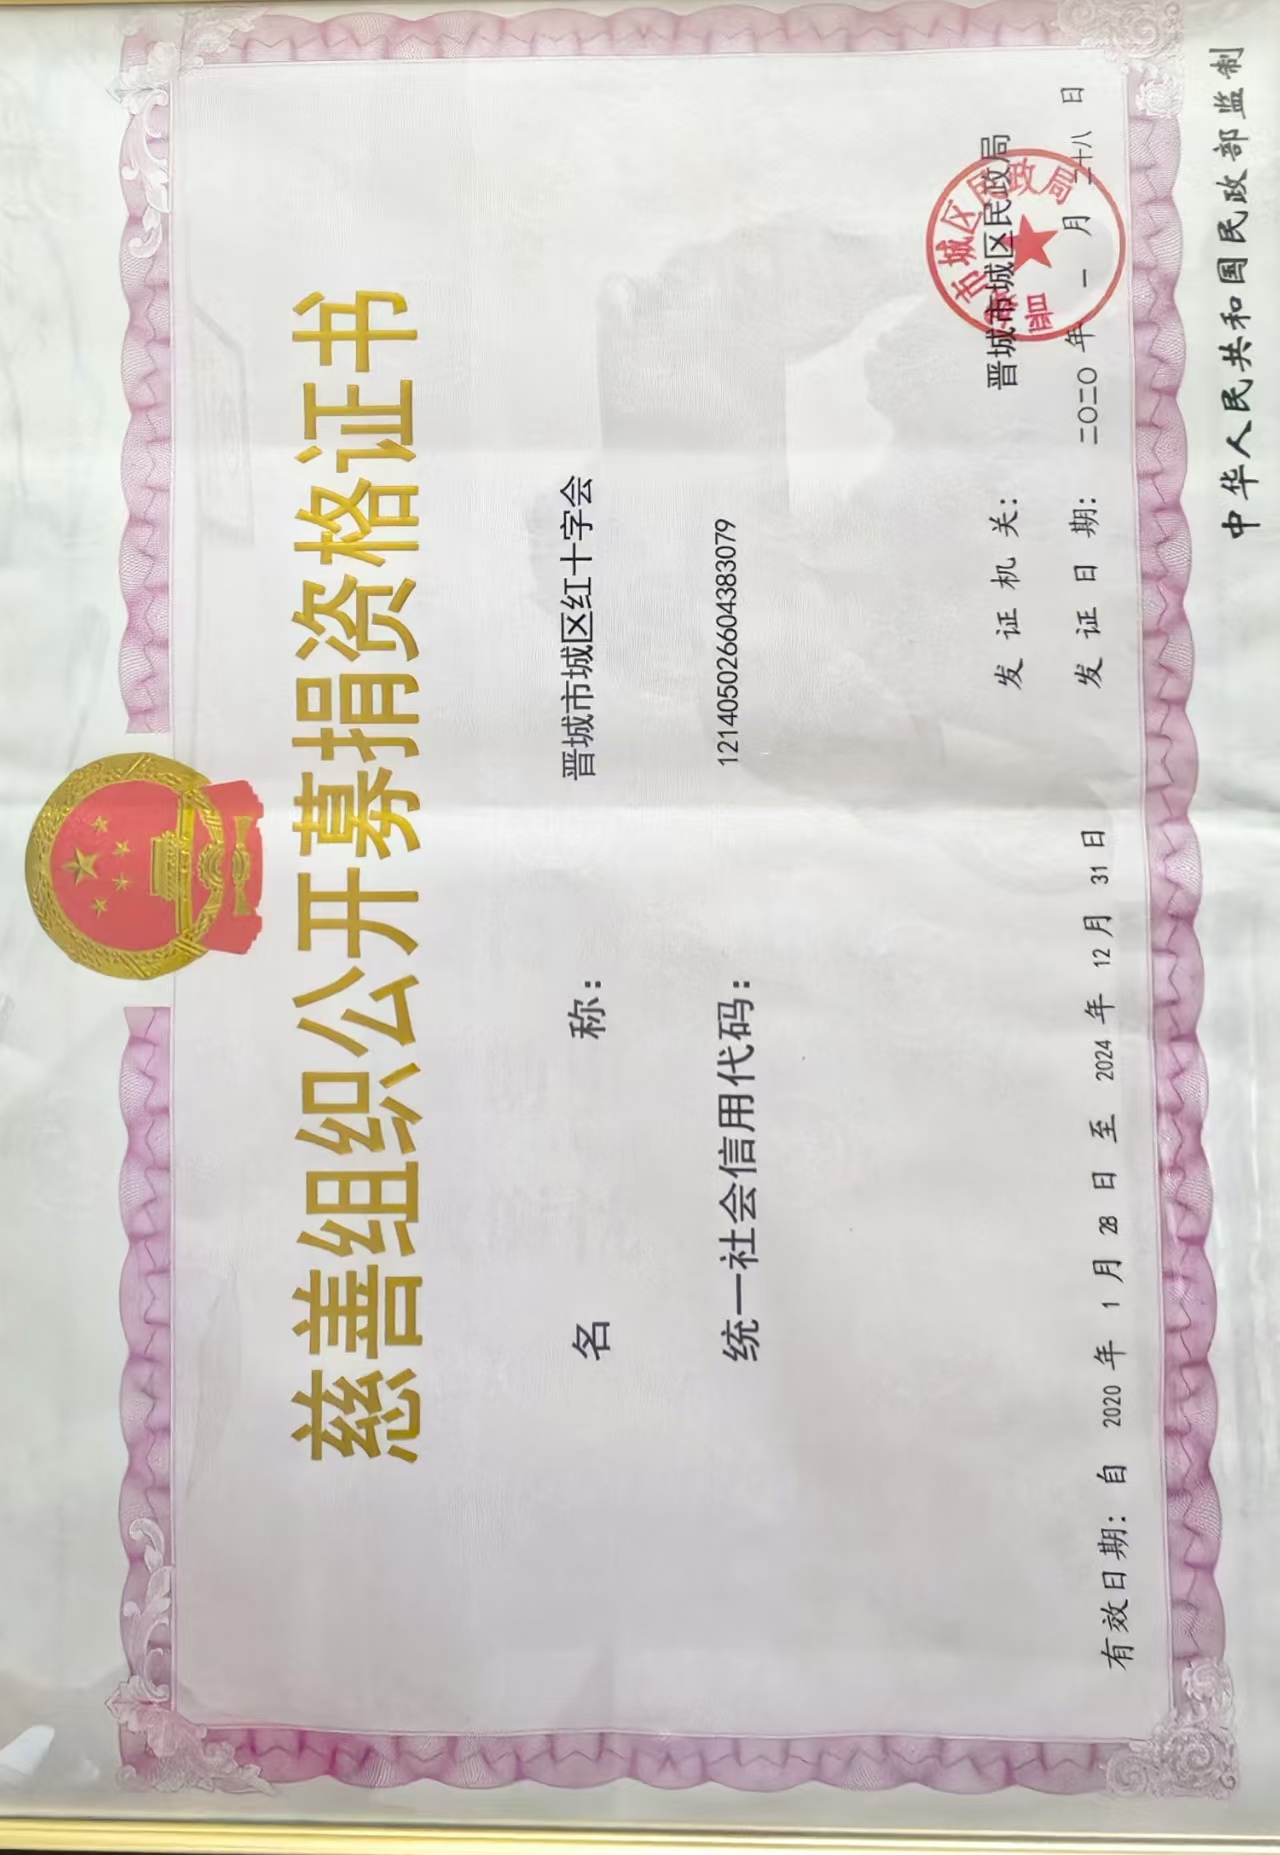 慈善组织公开募捐资格证书
名称：晋城市城区红十字会
统一社会信用代码：12140502660438307​9
发证机关：晋城市城区民政局
发证日期：二〇二〇年一月二十八日
有效日期：自 2020 年 1 月 28 日 至 2024 年 12 月 31 日
中华人民共和国民政部监制
市城区民政局